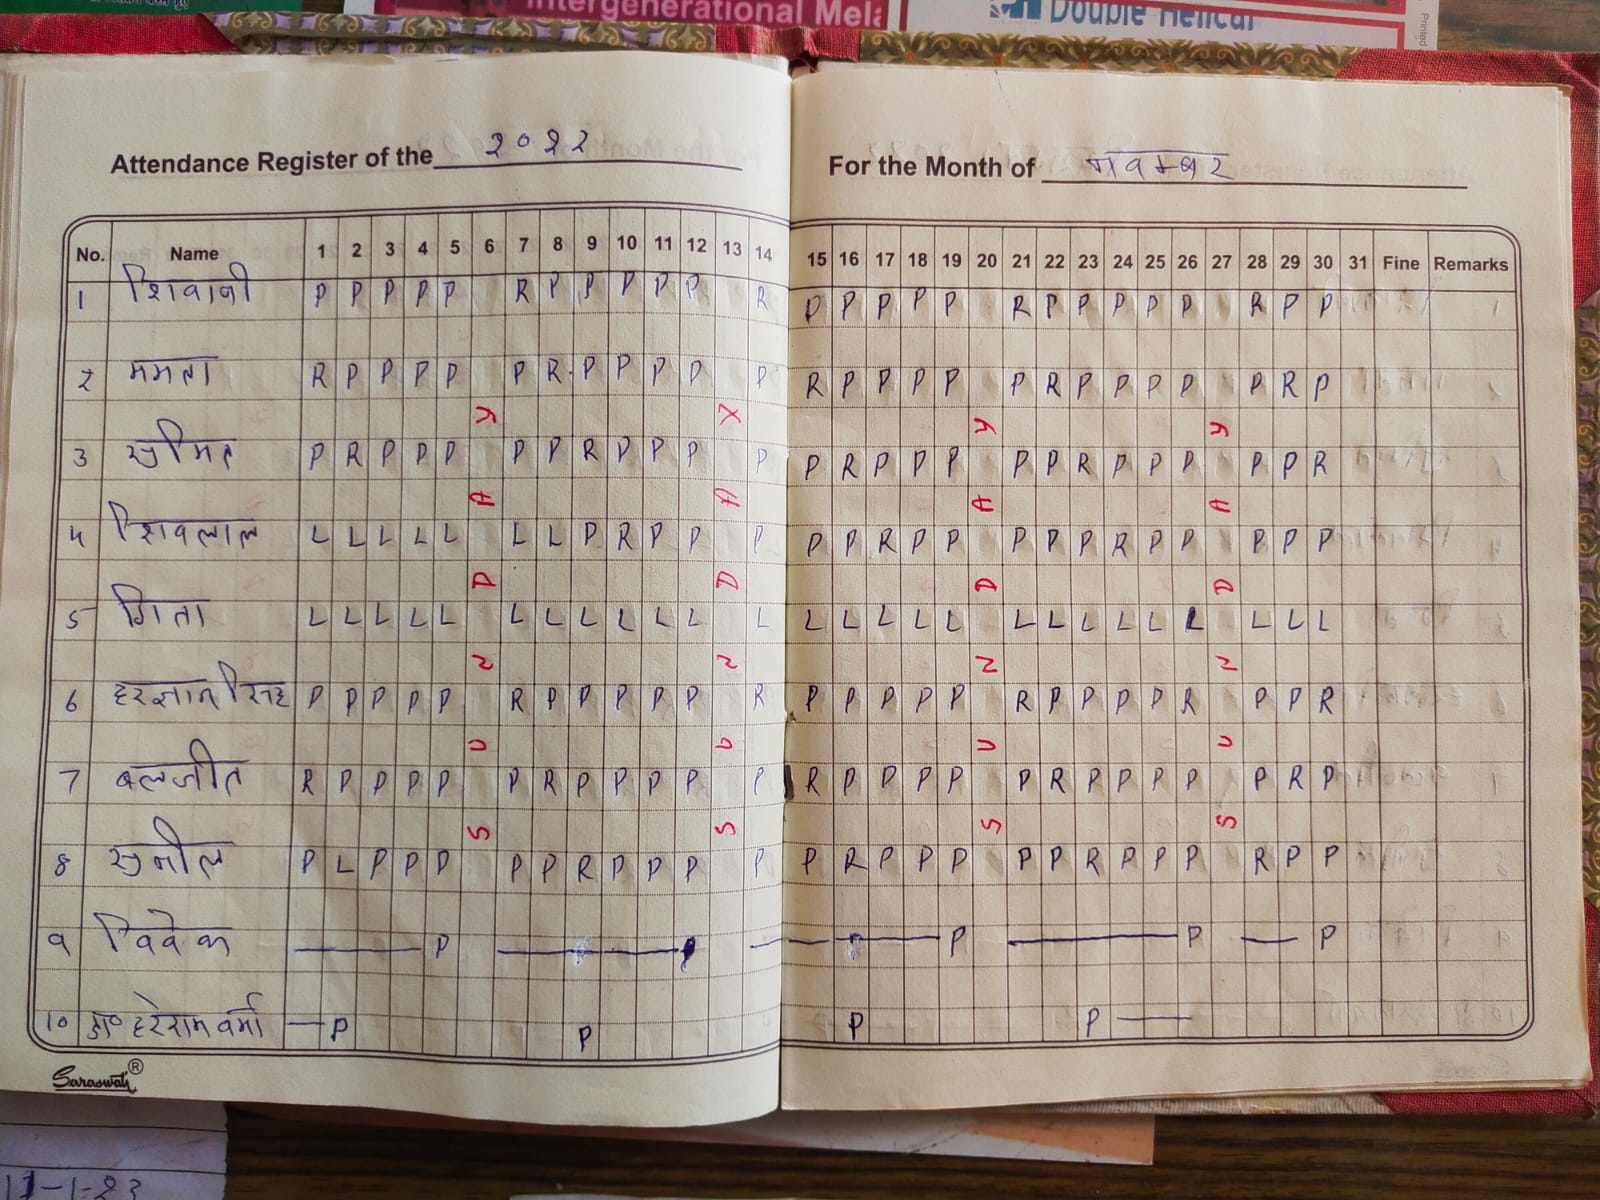 Intergenerational Mela
Double Helical
Printed
Attendance Register of the २०२२
For the Month of नवम्बर
No. Name 1 2 3 4 5 6 7 8 9 10 11 12 13 14 15 16 17 18 19 20 21 22 23 24 25 26 27 28 29 30 31 Fine Remarks
1 शिवानी P P P P P R P P P P P R P P P P P R P P P P P R P P
2 ममता R P P P P P R P P P P P R P P P P P R P P P P P R P
3 सुमित P R P P P P P R P P P P P R P P P P P R P P P P P R
4 शिवलाल L L L L L L L P R P P P P P R P P P P P R P P P P P
5 गिता L L L L L L L L L L L L L L L L L L L L L L L L L L
6 हरज्ञान सिंह P P P P P R P P P P P R P P P P P R P P P P R P P R
7 बलजीत R P P P P P R P P P P P R P P P P P R P P P P P R P
8 सुनील P L P P P P P R P P P P P R P P P P P R P P P R P P
9 विवेक P P P P P
10 डा० हरेराम वर्मा P P P P
SUNDAY SUNDAY SUNDAY SUNDAY
Saraswati ®